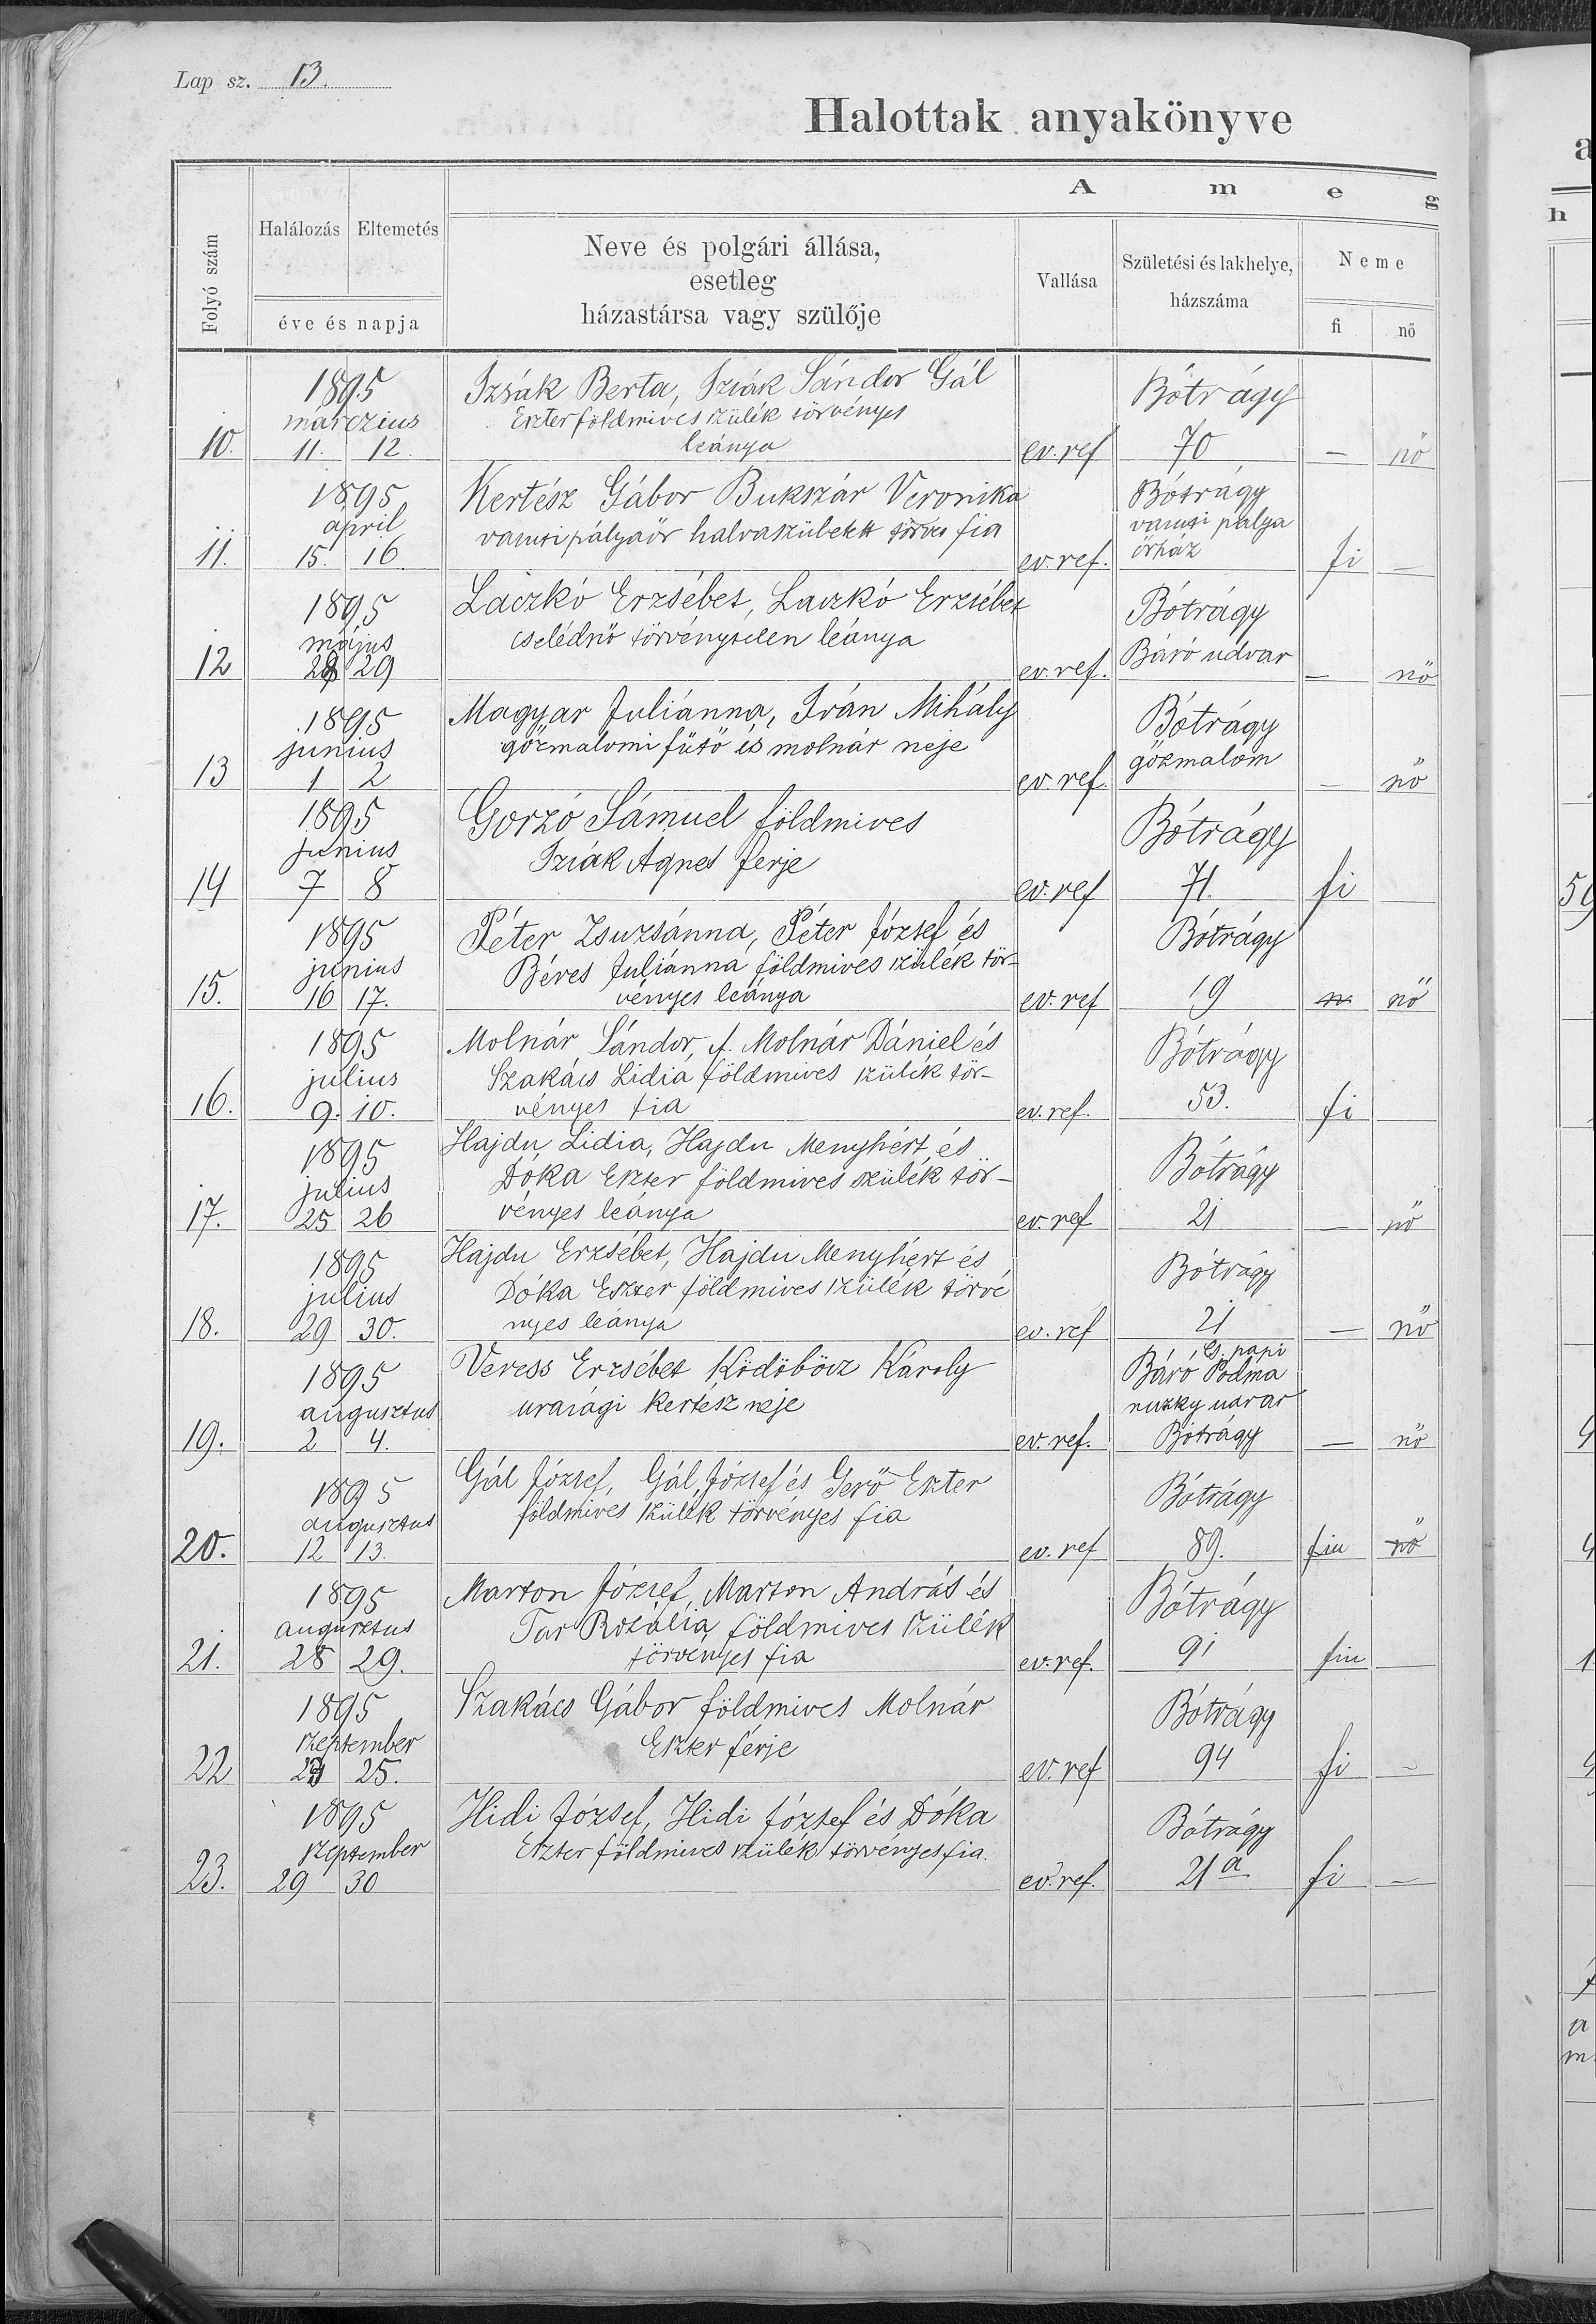 Lap sz. 13.
Halottak anyakönyve
A m e g
Folyó szám
Halálozás Eltemetés
éve és napja
Neve és polgári állása,
esetleg
házastársa vagy szülője
Vallása
Születési és lakhelye,
házszáma
Neme
fi nő
1895 Izsák Berta, Izsák Sándor Gál Bótrágy
márczius Eszter földmives szülék törvényes
10. 11. 12. leánya ev. ref 70 – nö
1895 Kertész Gábor Bukszár Veronika Bótrágy
april vasuti pályaör halvaszületett törves fia vasuti palya
11. 15. 16. ev. ref. örház fi –
1895 Laczkó Erzsébet, Laczkó Erzsébet Bótrágy
május cselédnö törvénytelen leánya
12 28 29 ev. ref. Báró udvar – nö
1895 Magyar Juliánna, Iván Mihály Bótrágy
junius gözmalomi fütö és molnár neje gözmalom
13 1 2 ev. ref. – nö
1895 Gorzó Sámuel földmives Bótrágy
junius Izsák Ágnes ferje
14 7 8 ev. ref 71. fi
1895 Péter Zsuzsánna, Péter József és Bótrágy
junius Béres Juliánna földmives szülék tör-
15. 16 17. vényes leánya ev. ref 19 nö
1895 Molnár Sándor, Molnár Dániel és Bótrágy
julius Szakács Lidia földmives szülék tör-
16. 9. 10. vényes fia ev. ref. 53. fi
1895 Hajdu Lidia, Hajdu Menyhért és Bótrágy
julius Dóka Eszter földmives szülék tör-
17. 25 26 vényes leánya ev. ref 21 – nö
1895 Hajdu Erzsébet, Hajdu Menyhért és Bótrágy
julius Dóka Eszter földmives szülék törvé
18. 29 30. nyes leánya ev. ref 21 – nö
1895 Veress Erzsébet Ködöböcz Károly Báró Podma
augusztus urasági kertész neje niczky udvar
19. 2 4. ev. ref. Bótrágy – nö
1895 Gál József, Gál József és Gerö Eszter Bótrágy
augusztus földmives szülék törvényes fia
20. 12 13. ev. ref 89. fiu nö
1895 Marton József, Marton András és Bótrágy
augusztus Tar Rozália földmives szülék
21. 28 29. törvényes fia ev. ref. 91 fiu
1895 Szakács Gábor földmives Molnár Bótrágy
szeptember Eszter férje
22 24 25. ev. ref 94 fi –
1895 Hidi József, Hidi József és Dóka Bótrágy
szeptember Eszter földmives szülék törvényes fia.
23. 29 30 ev. ref. 21 a fi –